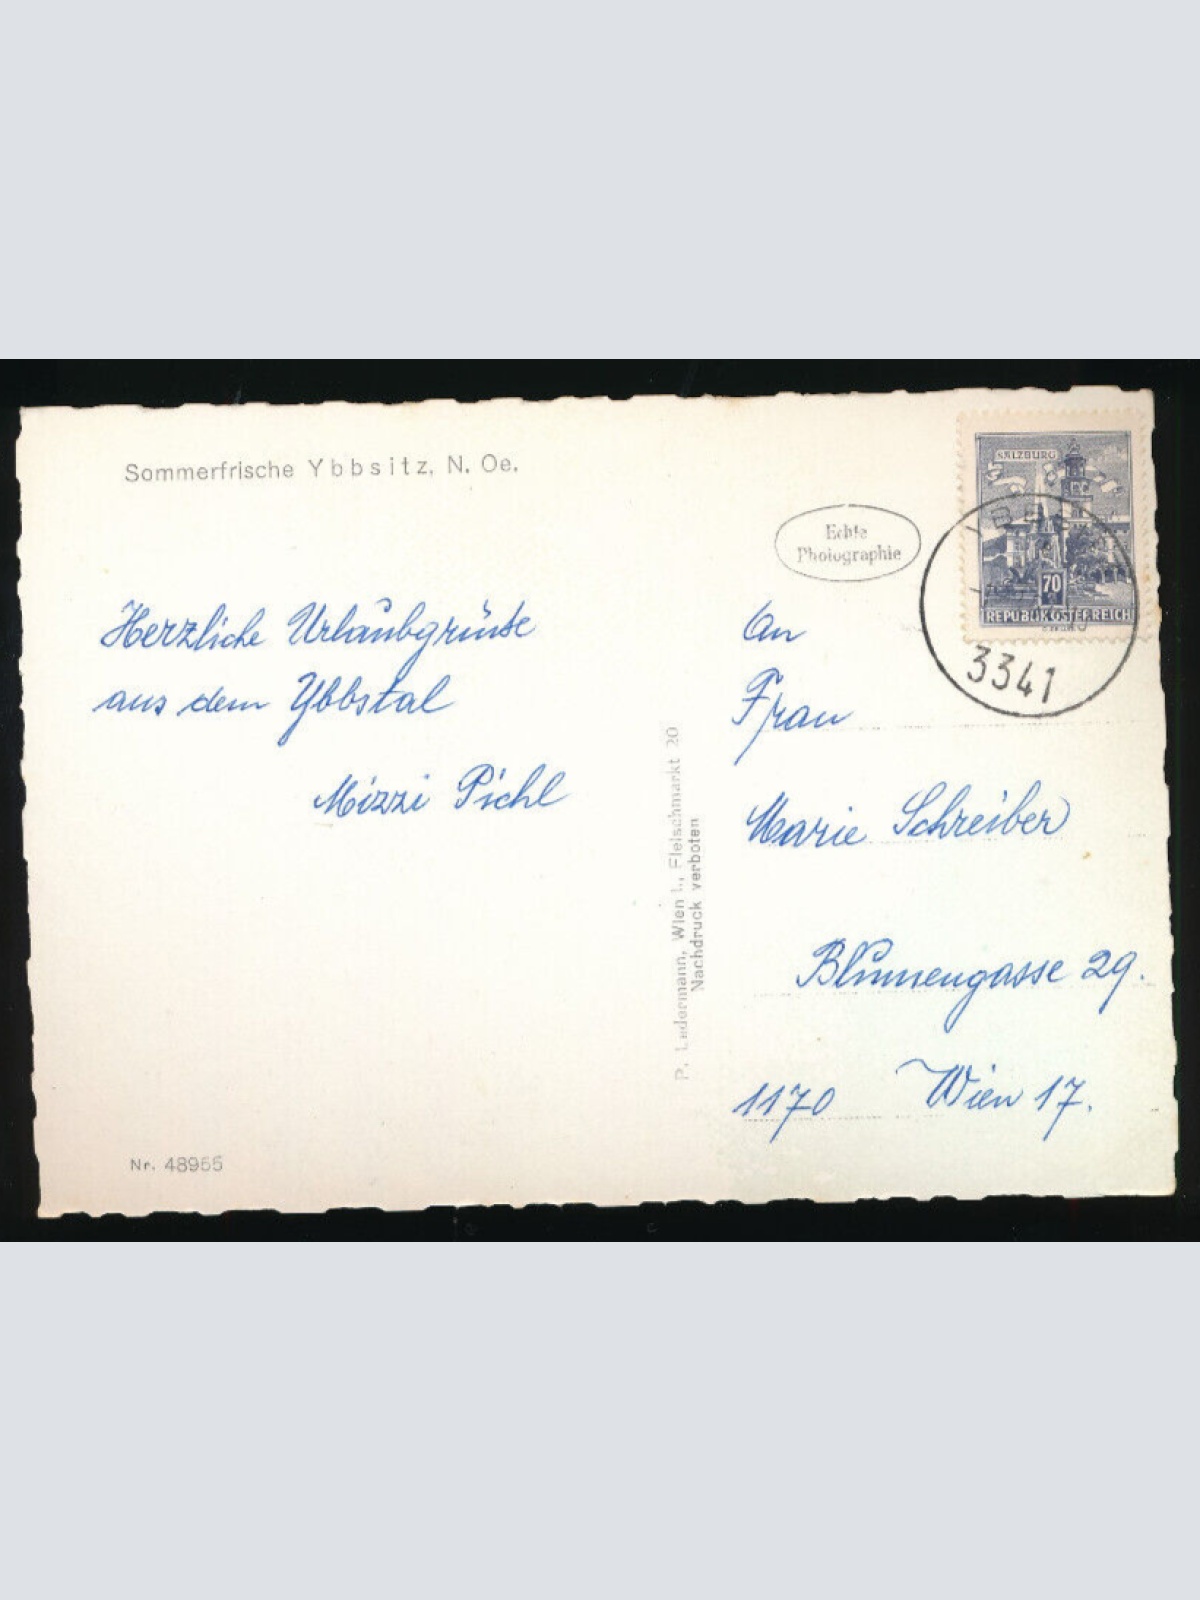 Sommerfrische Ybbsitz, N. Oe.
Herzliche Urlaubgrüße
aus dem Ybbstal
Mizzi Pichl
Nr. 48955
P. Ledermann, Wien I., Fleischmarkt 20
Nachdruck verboten
Echte
Photographie
SALZBURG
70
REPUBLIK ÖSTERREICH
3341
An
Frau
Marie Schreiber
Blumengasse 29.
1170 Wien 17.